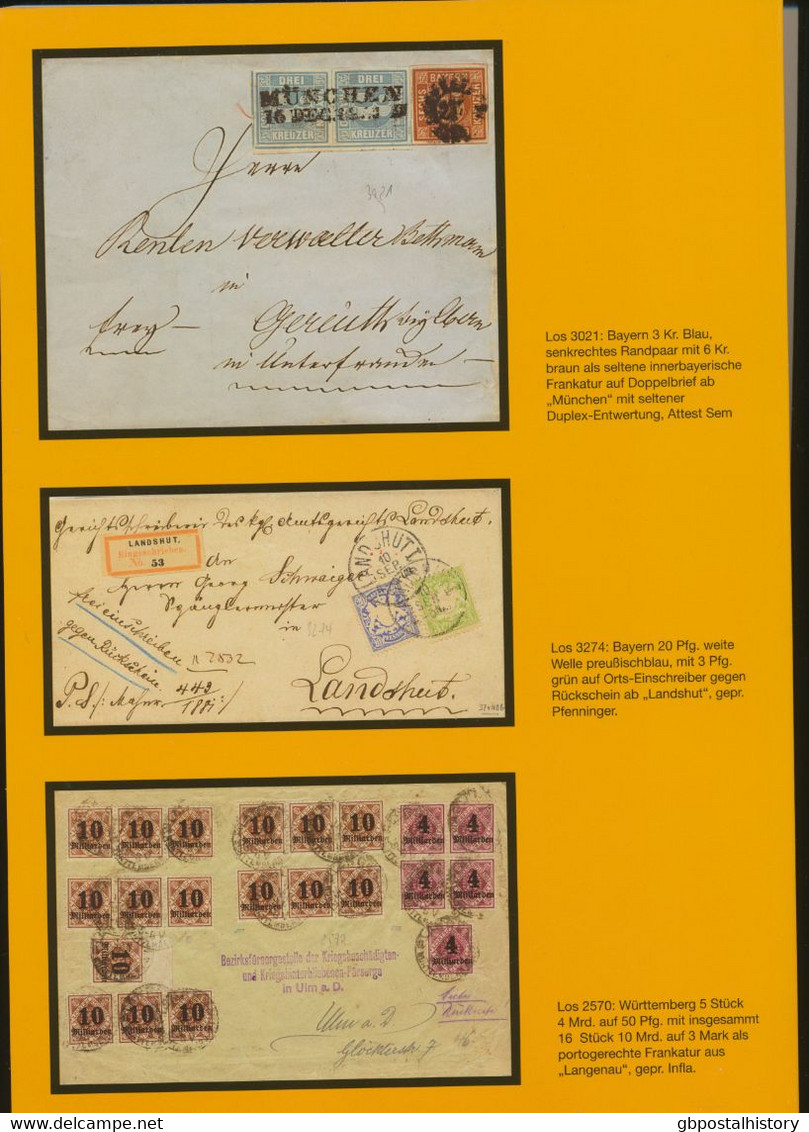 DREI DREI BAYERN
MÜNCHEN
16 DEC.
KREUZER KREUZER
SECHS KREUZER
217
Herrn
3021
Renten Verwalter Bethmann
in
frey — Gereuth bey Ebern
in Unterfranken
Los 3021: Bayern 3 Kr. Blau,
senkrechtes Randpaar mit 6 Kr.
braun als seltene innerbayerische
Frankatur auf Doppelbrief ab
„München“ mit seltener
Duplex-Entwertung, Attest Sem
Gerichtsschreiberei des kgl. Amtsgerichts Landshut.
LANDSHUT.
Eingeschrieben.
No. 53
An
Herrn Georg Schwaiger
Spänglermeister
in
Landshut.
frei einschreiben
gegen Rückschein
n 2832
443
1881
LANDSHUT
10
SEP
Los 3274: Bayern 20 Pfg. weite
Welle preußischblau, mit 3 Pfg.
grün auf Orts-Einschreiber gegen
Rückschein ab „Landshut“, gepr.
Pfenninger.
10 Milliarden 10 Milliarden 10 Milliarden 10 Milliarden 10 Milliarden 10 Milliarden 4 Milliarden 4 Milliarden
10 Milliarden 10 Milliarden 10 Milliarden 10 Milliarden 10 Milliarden 10 Milliarden 4 Milliarden 4 Milliarden
10 Milliarden 4 Milliarden
10 Milliarden 10 Milliarden 10 Milliarden
Bezirksfürsorgestelle der Kriegsbeschädigten-
und Kriegshinterbliebenen-Fürsorge
in Ulm a. D.
Ulm a. D.
Glöcklerstr. 7
Siehe
Rückseite!
Los 2570: Württemberg 5 Stück
4 Mrd. auf 50 Pfg. mit insgesammt
16 Stück 10 Mrd. auf 3 Mark als
portogerechte Frankatur aus
„Langenau“, gepr. Infla.
gbpostalhistory